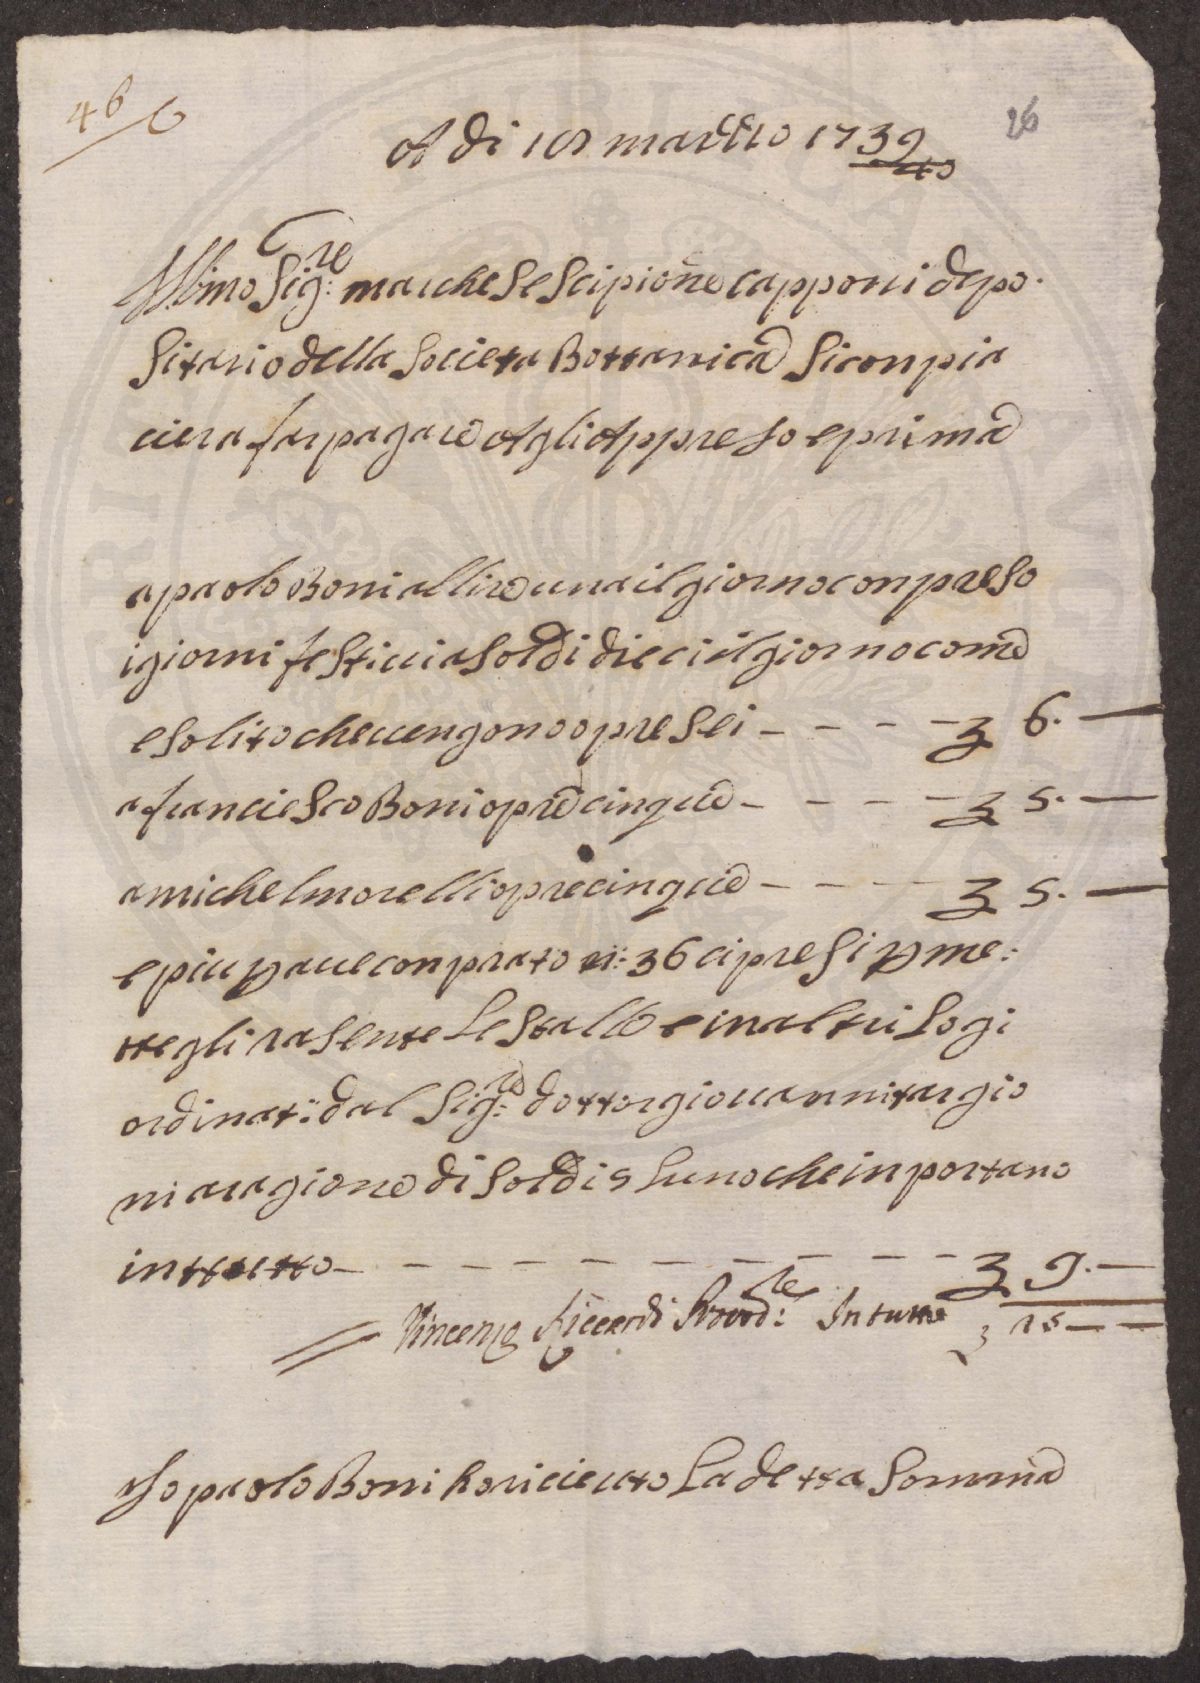 46/6
26
A di 19 marzzo 1739
40
Illmo Sig:re marchese Scipione Capponi depo.
sitario della Societa Bottanica si conpia
ciera far pagare Agli Appreso e prima
a paolo Boni allire una il giorno conpreso
i giorni festiui a soldi dieci il giorno come
e solito che uengono opre sei - - - - 6. —
a franciesco Boni opre cinque - - - - 5. —
a michel morelli opre cinque - - - - 5. —
e piu p aue conprato n: 36 cipresi p me:
ttegli rasente le stalle e in altri logi
ordinati: dal Sig:re dottor giouanni targio
ni a ragione di soldi 5 luno che inportano
in ttutto - - - - - - - - - 9. —
Vincenzo Riccardi Provd:re In tutto 25 — —
Io paolo Boni ho riceuto La detta Somma